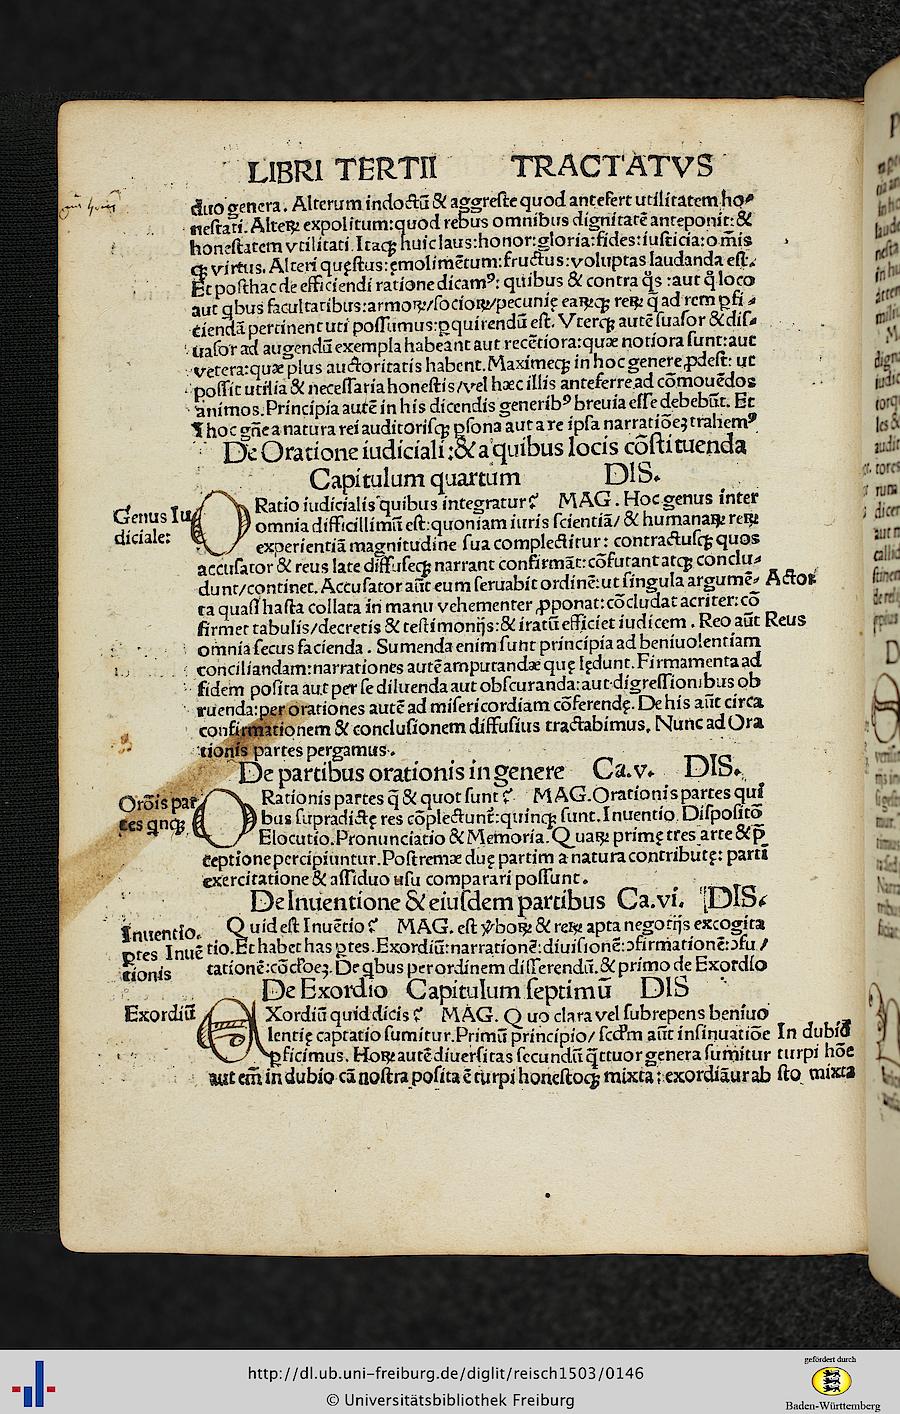 LIBRI TERTII TRACTATVS
duo genera. Alterum indoctũ & aggreste quod antefert utilitatem ho⸗
nestati. Alteꝝ expolitum:quod rebus omnibus dignitatẽ anteponit:&
honestatem vtilitati. Itaqꝫ huic laus:honor:gloria:fides:iusticia:om̃is
qꝫ virtus. Alteri quęstus:ęmolimẽtum:fructus:voluptas laudanda est.
Et posthac de efficiendi ratione dicamꝰ: quibus & contra q̃s :aut q̊ loco
aut qbus facultatibus:armoꝝ/socioꝝ/pecunię eaꝝqꝫ reꝝ q̃ ad rem ꝑfi⸗
ciendã pertinent uti possumus:ꝑquirendũ est. Vterqꝫ autẽ suasor & dis⸗
uasor ad augendũ exempla habeant aut recẽtiora:quæ notiora sunt:aut
vetera:quæ plus auctoritatis habent. Maximeqꝫ in hoc genere ꝓdest: ut
possit utilia & necessaria honestis/vel hæc illis anteferre ad cõmouẽdos
animos. Principia autẽ in his dicendis generibꝰ breuia esse debebũt. Et
ĩ hoc gñe a natura rei auditorisqꝫ ꝑsona aut a re ipsa narratiõeꝫ trahemꝰ
De Oratione iudiciali :& a quibus locis cõstituenda
Capitulum quartum DIS.
Genus Iu
diciale:
ORatio iudicialis quibus integratur? MAG. Hoc genus inter
omnia difficillimũ est:quoniam iuris scientiã/ & humanaꝝ reꝝ
experientiã magnitudine sua complectitur: contractusqꝫ quos
accusator & reus late diffuseqꝫ narrant confirmãt:cõfutant atqꝫ conclu⸗
dunt/continet. Accusator aũt eum seruabit ordinẽ:ut singula argumẽ⸗ Actor
ta quasi hasta collata in manu vehementer ꝓponat:cõcludat acriter:cõ
firmet tabulis/decretis & testimonijs:& iratũ efficiet iudicem. Reo aũt Reus
omnia secus facienda. Sumenda enim sunt principia ad beniuolentiam
conciliandam:narrationes autẽ amputandæ quę lędunt. Firmamenta ad
fidem posita aut per se diluenda aut obscuranda:aut digressionibus ob
ruenda:per orationes autẽ ad misericordiam cõferendę. De his aũt circa
confirmationem & conclusionem diffusius tractabimus. Nunc ad Ora
tionis partes pergamus.
De partibus orationis in genere Ca.v. DIS.
Orõis par
tes qnqꝫ
ORationis partes q̃ & quot sunt? MAG.Orationis partes qui
bus supradictę res cõplectunt̃:quinqꝫ sunt.Inuentio. Dispositõ
Elocutio.Pronunciatio & Memoria. Quaꝝ primę tres arte & p̃
ceptione percipiuntur.Postremæ duę partim a natura contributę: parti
exercitatione & assiduo usu comparari possunt.
De Inuentione & eiusdem partibus Ca.vi. DIS.
Inuentio.
ꝑtes Inuẽ
tionis
Quid est Inuẽtio? MAG. est ṽboꝝ & reꝝ apta negotijs excogita
tio.Et habet has ꝑtes.Exordiũ:narrationẽ:diuisionẽ:ↄfirmationẽ:ↄfu/
tationẽ:cõcľoeꝫ. De qbus per ordinem disserendũ.& primo de Exordio
De Exordio Capitulum septimũ DIS
Exordiũ
EXordiũ quid dicis? MAG. Quo clara vel subrepens beniuo
lentię captatio sumitur.Primũ principio/ scďm aũt insinuatiõe In dubiõ
ꝑficimus. Hoꝝ autẽ diuersitas secundũ q̃ttuor genera sumitur turpi hõe
aut em̃ in dubio cã nostra posita ẽ turpi honestoqꝫ mixta: exordiãur ab sto mixta
http://dl.ub.uni-freiburg.de/diglit/reisch1503/0146
© Universitätsbibliothek Freiburg
gefördert durch
Baden-Württemberg